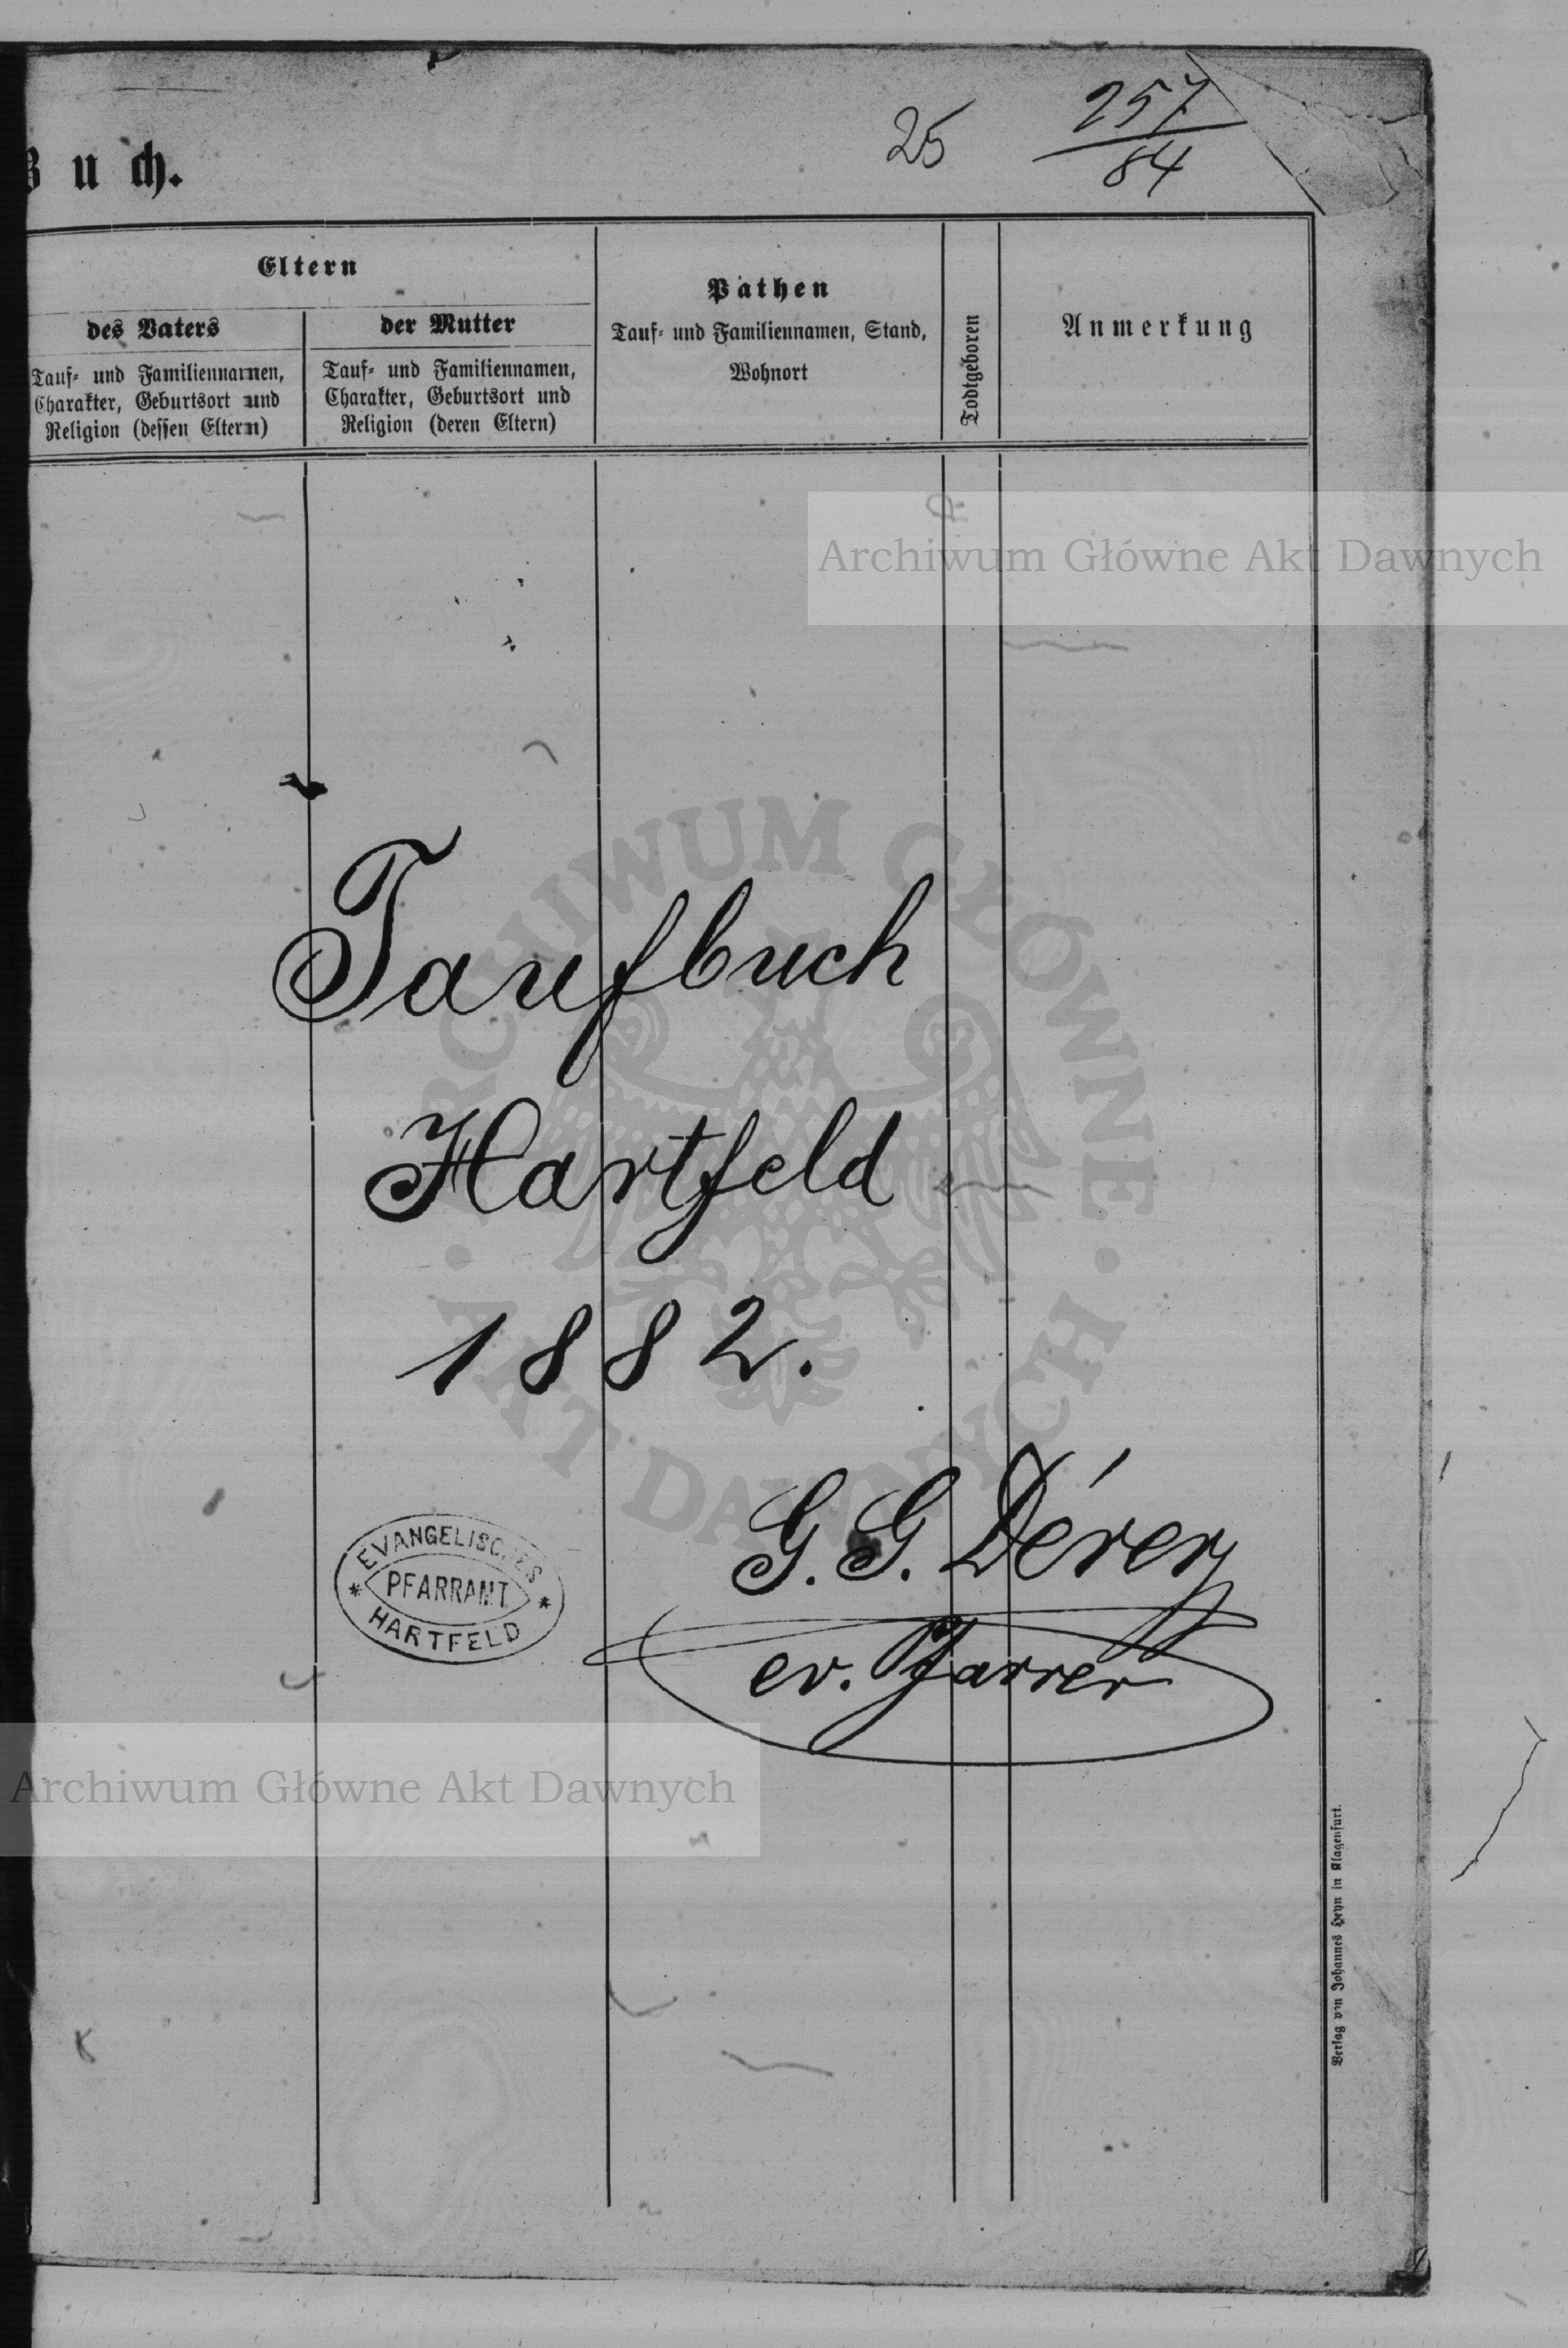 Buch.
25
257
84
Eltern
des Vaters
Tauf- und Familiennamen,
Charakter, Geburtsort und
Religion (dessen Eltern)
der Mutter
Tauf- und Familiennamen,
Charakter, Geburtsort und
Religion (deren Eltern)
Pathen
Tauf- und Familiennamen, Stand,
Wohnort
Todtgeboren
Anmerkung
Archiwum Główne Akt Dawnych
ARCHIWUM GŁÓWNE
AKT DAWNYCH
Taufbuch
Hartfeld
1882.
G. G. Dérer
ev. Pfarrer
EVANGELISCHES
PFARRAMT
HARTFELD
Archiwum Główne Akt Dawnych
Verlag von Johannes Heyn in Klagenfurt.